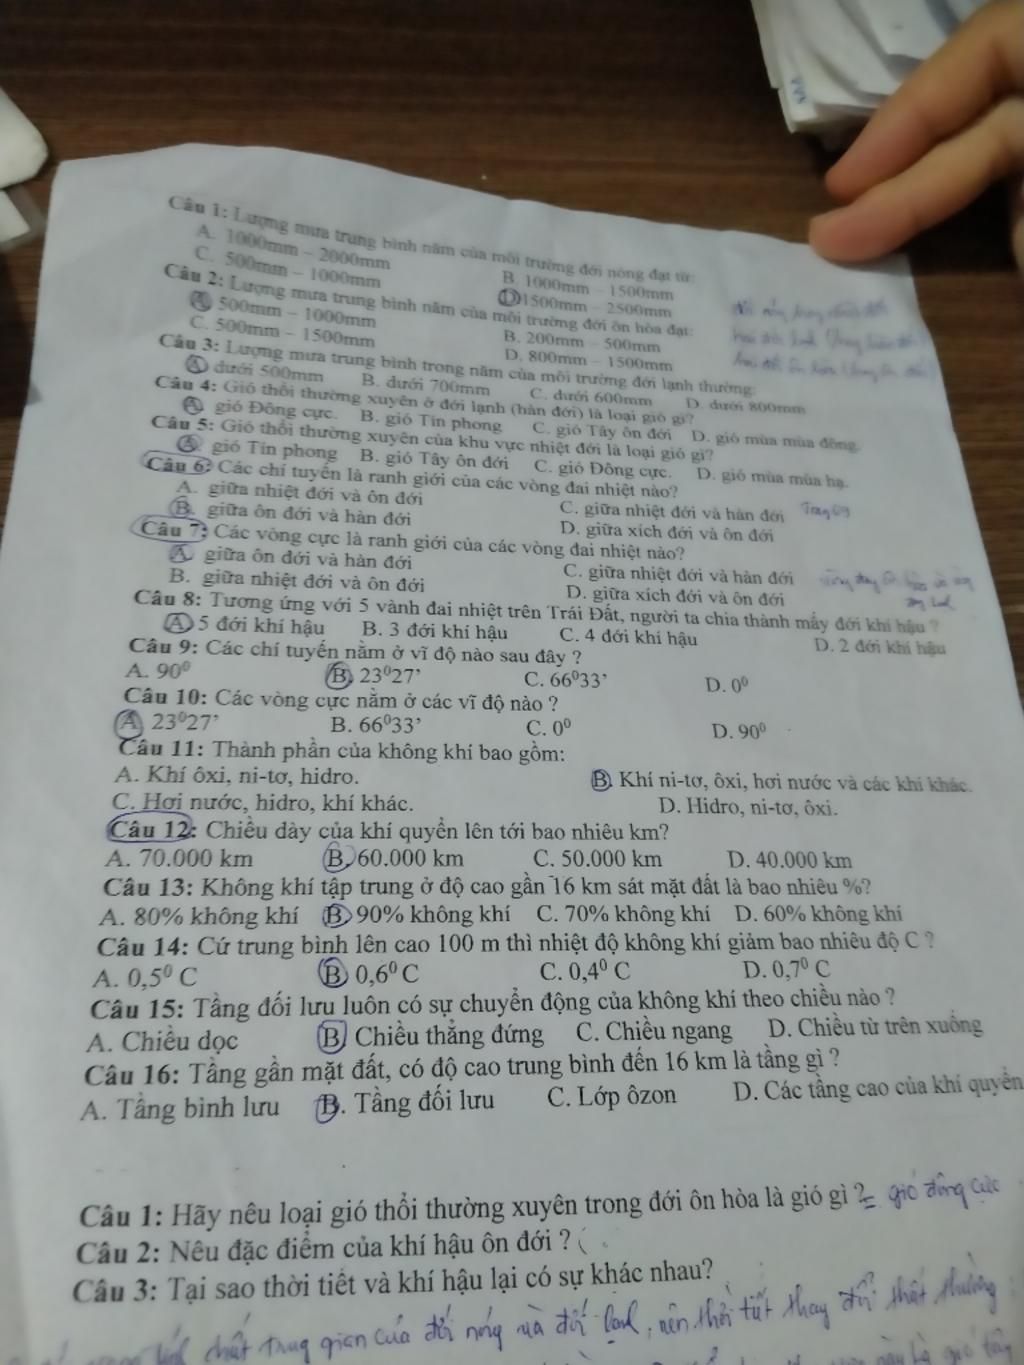 Câu 1: Lượng mưa trung bình năm của môi trường đới nóng đạt từ:
A. 1000mm – 2000mm B. 1000mm – 1500mm
C. 500mm – 1000mm D 1500mm – 2500mm
Câu 2: Lượng mưa trung bình năm của môi trường đới ôn hòa đạt:
A 500mm – 1000mm B. 200mm – 500mm
C. 500mm – 1500mm D. 800mm – 1500mm
Câu 3: Lượng mưa trung bình trong năm của môi trường đới lạnh thường:
A dưới 500mm B. dưới 700mm C. dưới 600mm D. dưới 800mm
Câu 4: Gió thổi thường xuyên ở đới lạnh (hàn đới) là loại gió gì?
A gió Đông cực. B. gió Tín phong C. gió Tây ôn đới D. gió mùa mùa đông.
Câu 5: Gió thổi thường xuyên của khu vực nhiệt đới là loại gió gì?
A. gió Tín phong B. gió Tây ôn đới C. gió Đông cực. D. gió mùa mùa hạ.
Câu 6: Các chí tuyến là ranh giới của các vòng đai nhiệt nào?
A. giữa nhiệt đới và ôn đới C. giữa nhiệt đới và hàn đới
B. giữa ôn đới và hàn đới D. giữa xích đới và ôn đới
Câu 7: Các vòng cực là ranh giới của các vòng đai nhiệt nào?
A. giữa ôn đới và hàn đới C. giữa nhiệt đới và hàn đới
B. giữa nhiệt đới và ôn đới D. giữa xích đới và ôn đới
Câu 8: Tương ứng với 5 vành đai nhiệt trên Trái Đất, người ta chia thành mấy đới khí hậu ?
A 5 đới khí hậu B. 3 đới khí hậu C. 4 đới khí hậu D. 2 đới khí hậu
Câu 9: Các chí tuyến nằm ở vĩ độ nào sau đây ?
A. 90⁰ B. 23⁰27’ C. 66⁰33’ D. 0⁰
Câu 10: Các vòng cực nằm ở các vĩ độ nào ?
A 23⁰27’ B. 66⁰33’ C. 0⁰ D. 90⁰
Câu 11: Thành phần của không khí bao gồm:
A. Khí ôxi, ni-tơ, hidro. B. Khí ni-tơ, ôxi, hơi nước và các khí khác.
C. Hơi nước, hidro, khí khác. D. Hidro, ni-tơ, ôxi.
Câu 12: Chiều dày của khí quyển lên tới bao nhiêu km?
A. 70.000 km B. 60.000 km C. 50.000 km D. 40.000 km
Câu 13: Không khí tập trung ở độ cao gần 16 km sát mặt đất là bao nhiêu %?
A. 80% không khí B. 90% không khí C. 70% không khí D. 60% không khí
Câu 14: Cứ trung bình lên cao 100 m thì nhiệt độ không khí giảm bao nhiêu độ C ?
A. 0,5⁰ C B 0,6⁰ C C. 0,4⁰ C D. 0,7⁰ C
Câu 15: Tầng đối lưu luôn có sự chuyển động của không khí theo chiều nào ?
A. Chiều dọc B. Chiều thẳng đứng C. Chiều ngang D. Chiều từ trên xuống
Câu 16: Tầng gần mặt đất, có độ cao trung bình đến 16 km là tầng gì ?
A. Tầng bình lưu B. Tầng đối lưu C. Lớp ôzon D. Các tầng cao của khí quyển
Câu 1: Hãy nêu loại gió thổi thường xuyên trong đới ôn hòa là gió gì ? = gió đông cực
Câu 2: Nêu đặc điểm của khí hậu ôn đới ?
Câu 3: Tại sao thời tiết và khí hậu lại có sự khác nhau?
chất trung gian của đới nóng và đới lạnh, nên thời tiết thay đổi thất thường